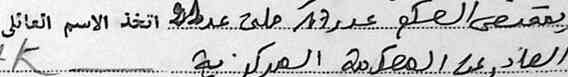 بمقتضى الحكم عدد 17 ملف عدد 21 اتخذ الاسم العائلي
الصادر عن المحكمة المركزية